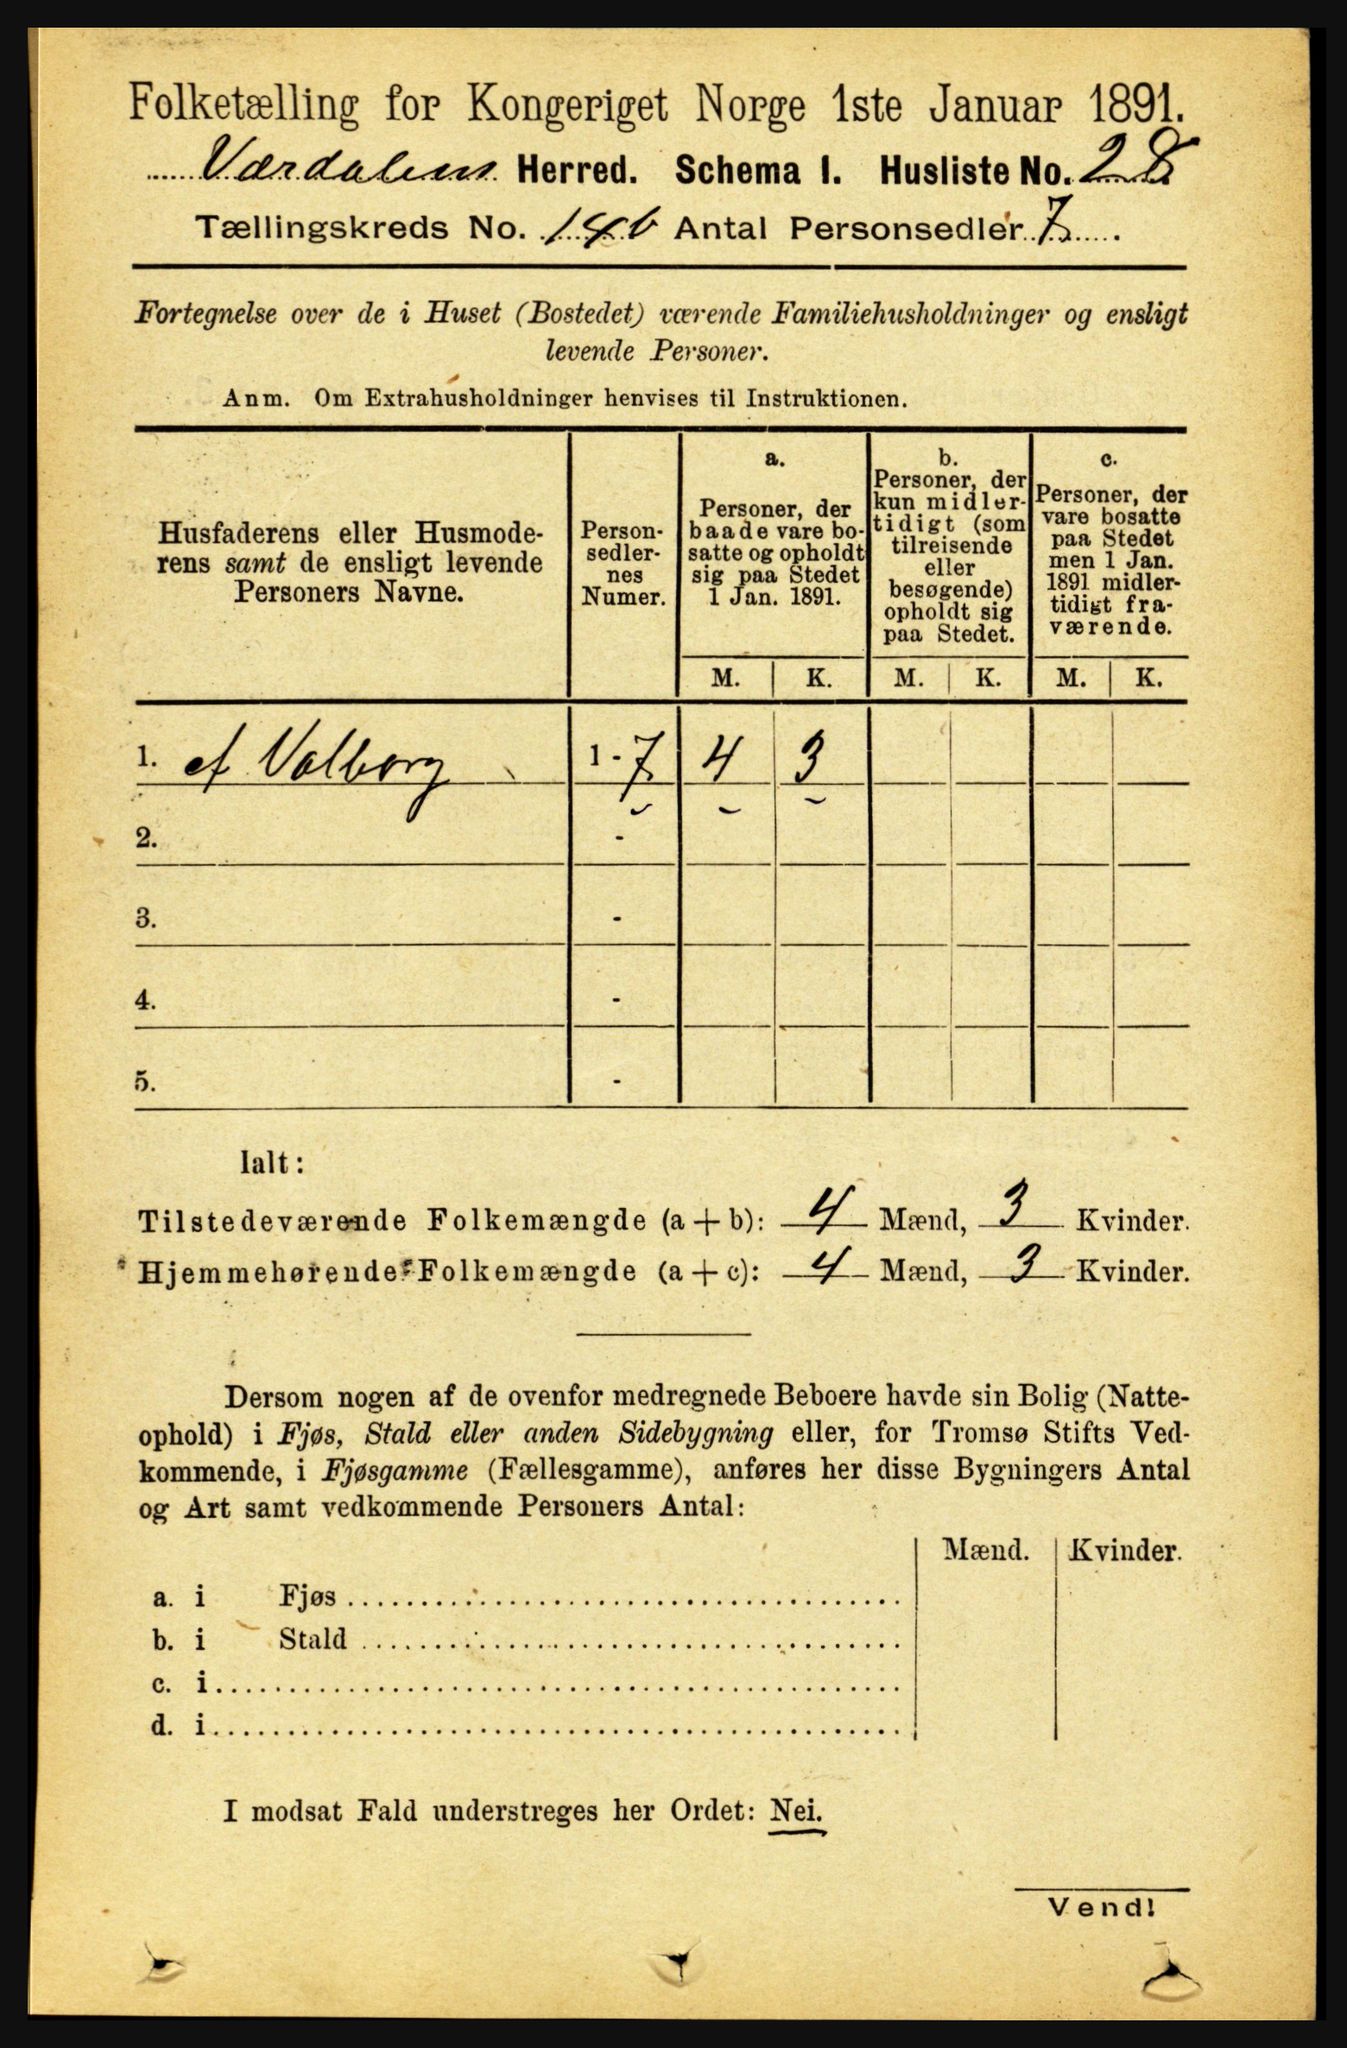 Folketælling for Kongeriget Norge 1ste Januar 1891.
Værdalens Herred. Schema I. Husliste No. 28
Tællingskreds No. 14b Antal Personsedler 7.
Fortegnelse over de i Huset (Bostedet) værende Familiehusholdninger og ensligt
levende Personer.
Anm. Om Extrahusholdninger henvises til Instruktionen.
Husfaderens eller Husmode-
rens samt de ensligt levende
Personers Navne.
Person-
sedler-
nes
Numer.
a.
Personer, der
baade vare bo-
satte og opholdt
sig paa Stedet
1 Jan. 1891.
b.
Personer, der
kun midler-
tidigt (som
tilreisende
eller
besøgende)
opholdt sig
paa Stedet.
c.
Personer, der
vare bosatte
paa Stedet
men 1 Jan.
1891 midler-
tidigt fra-
værende.
M. K. M. K. M. K.
1. af Valborg 1 - 7 4 3
2. -
3. -
4. -
5. -
Ialt:
Tilstedeværende Folkemængde (a + b): 4 Mænd, 3 Kvinder.
Hjemmehørende Folkemængde (a + c): 4 Mænd, 3 Kvinder.
Dersom nogen af de ovenfor medregnede Beboere havde sin Bolig (Natte-
ophold) i Fjøs, Stald eller anden Sidebygning eller, for Tromsø Stifts Ved-
kommende, i Fjøsgamme (Fællesgamme), anføres her disse Bygningers Antal
og Art samt vedkommende Personers Antal:
Mænd. Kvinder.
a. i Fjøs
b. i Stald
c. i
d. i
I modsat Fald understreges her Ordet: Nei.
Vend!